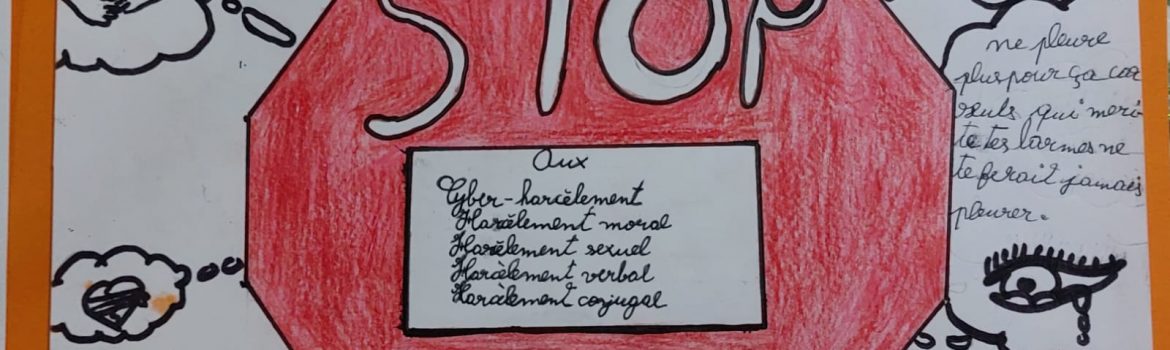 STOP
Aux
Cyber-harcèlement
Harèlement moral
Harèlement sexuel
Harcèlement verbal
Harcèlement conjugal
ne pleure
plus pour ça
seuls qui meri
te tes larmes ne
te ferait jamais
pleurer.